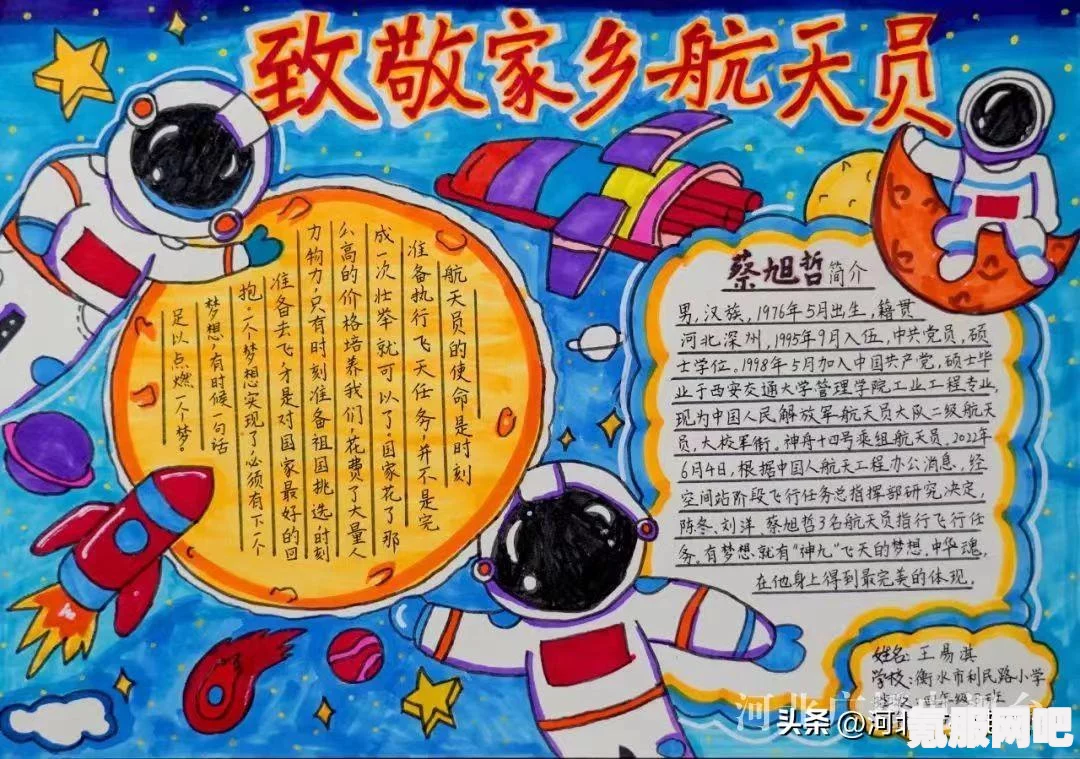 致敬家乡航天员
航天员的使命是时刻
准备执行飞天任务，并不是完
成一次壮举就可以了。国家花了那
么高的价格培养我们，花费了大量人
力物力，只有时刻准备祖国挑选，时刻
准备去飞，才是对国家最好的回
抱。一个梦想实现了，必须有下一个
梦想，有时候一句话
足以点燃一个梦。
蔡旭哲简介
男，汉族，1976年5月出生，籍贯
河北深州，1995年9月入伍，中共党员，硕
士学位。1998年5月加入中国共产党，硕士毕
业于西安交通大学管理学院工业工程专业，
现为中国人民解放军航天员大队二级航天
员，大校军衔。神舟十四号乘组航天员。2022年
6月4日，根据中国人航天工程办公消息，经
空间站阶段飞行任务总指挥部研究决定，
陈冬、刘洋、蔡旭哲3名航天员指行飞行任
务。有梦想就有“神九”飞天的梦想，中华魂，
在他身上得到最完美的体现。
姓名：王易淇
学校：衡水市利民路小学
年级 班
河北广播
头条 @河北
氪服网吧